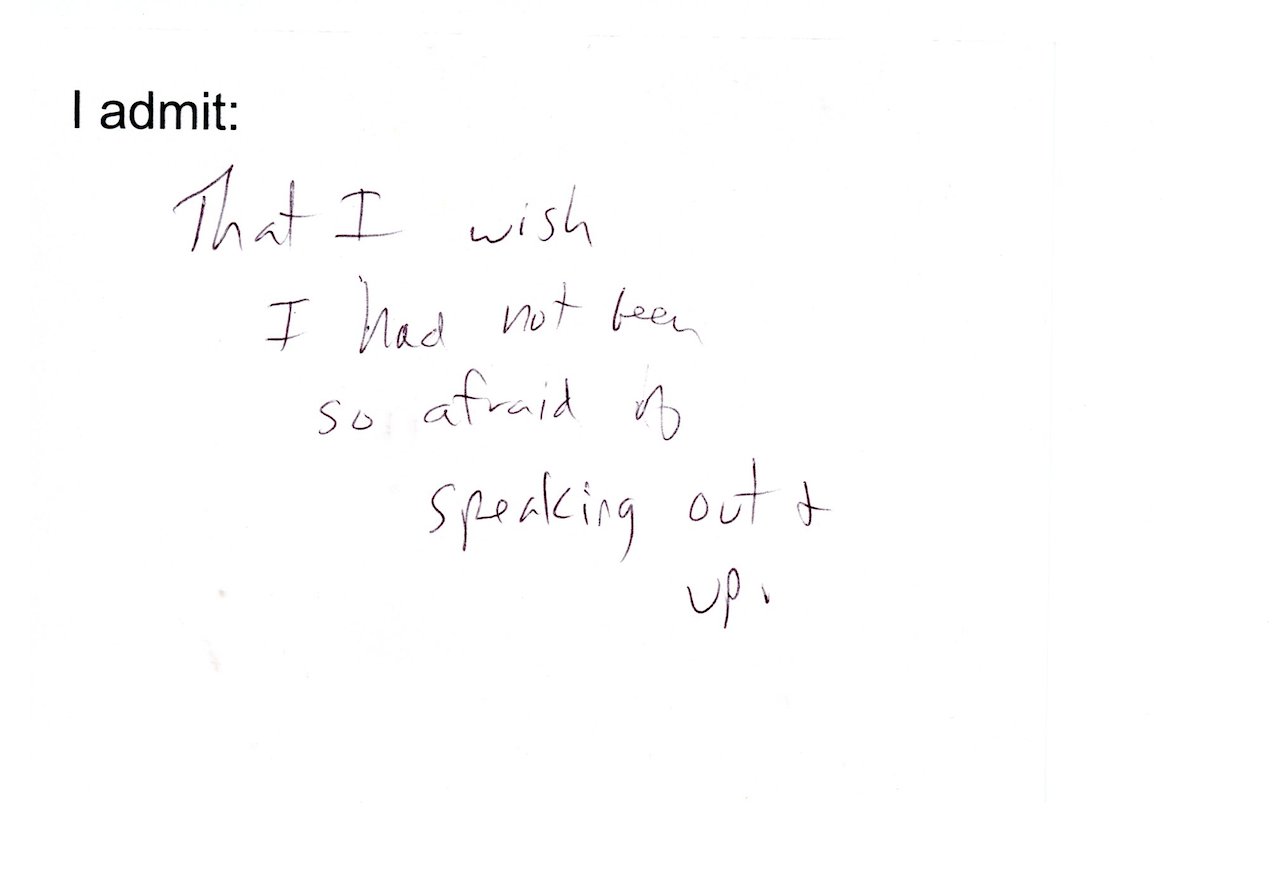 I admit:
That I wish
I had not been
so afraid of
speaking out &
up.